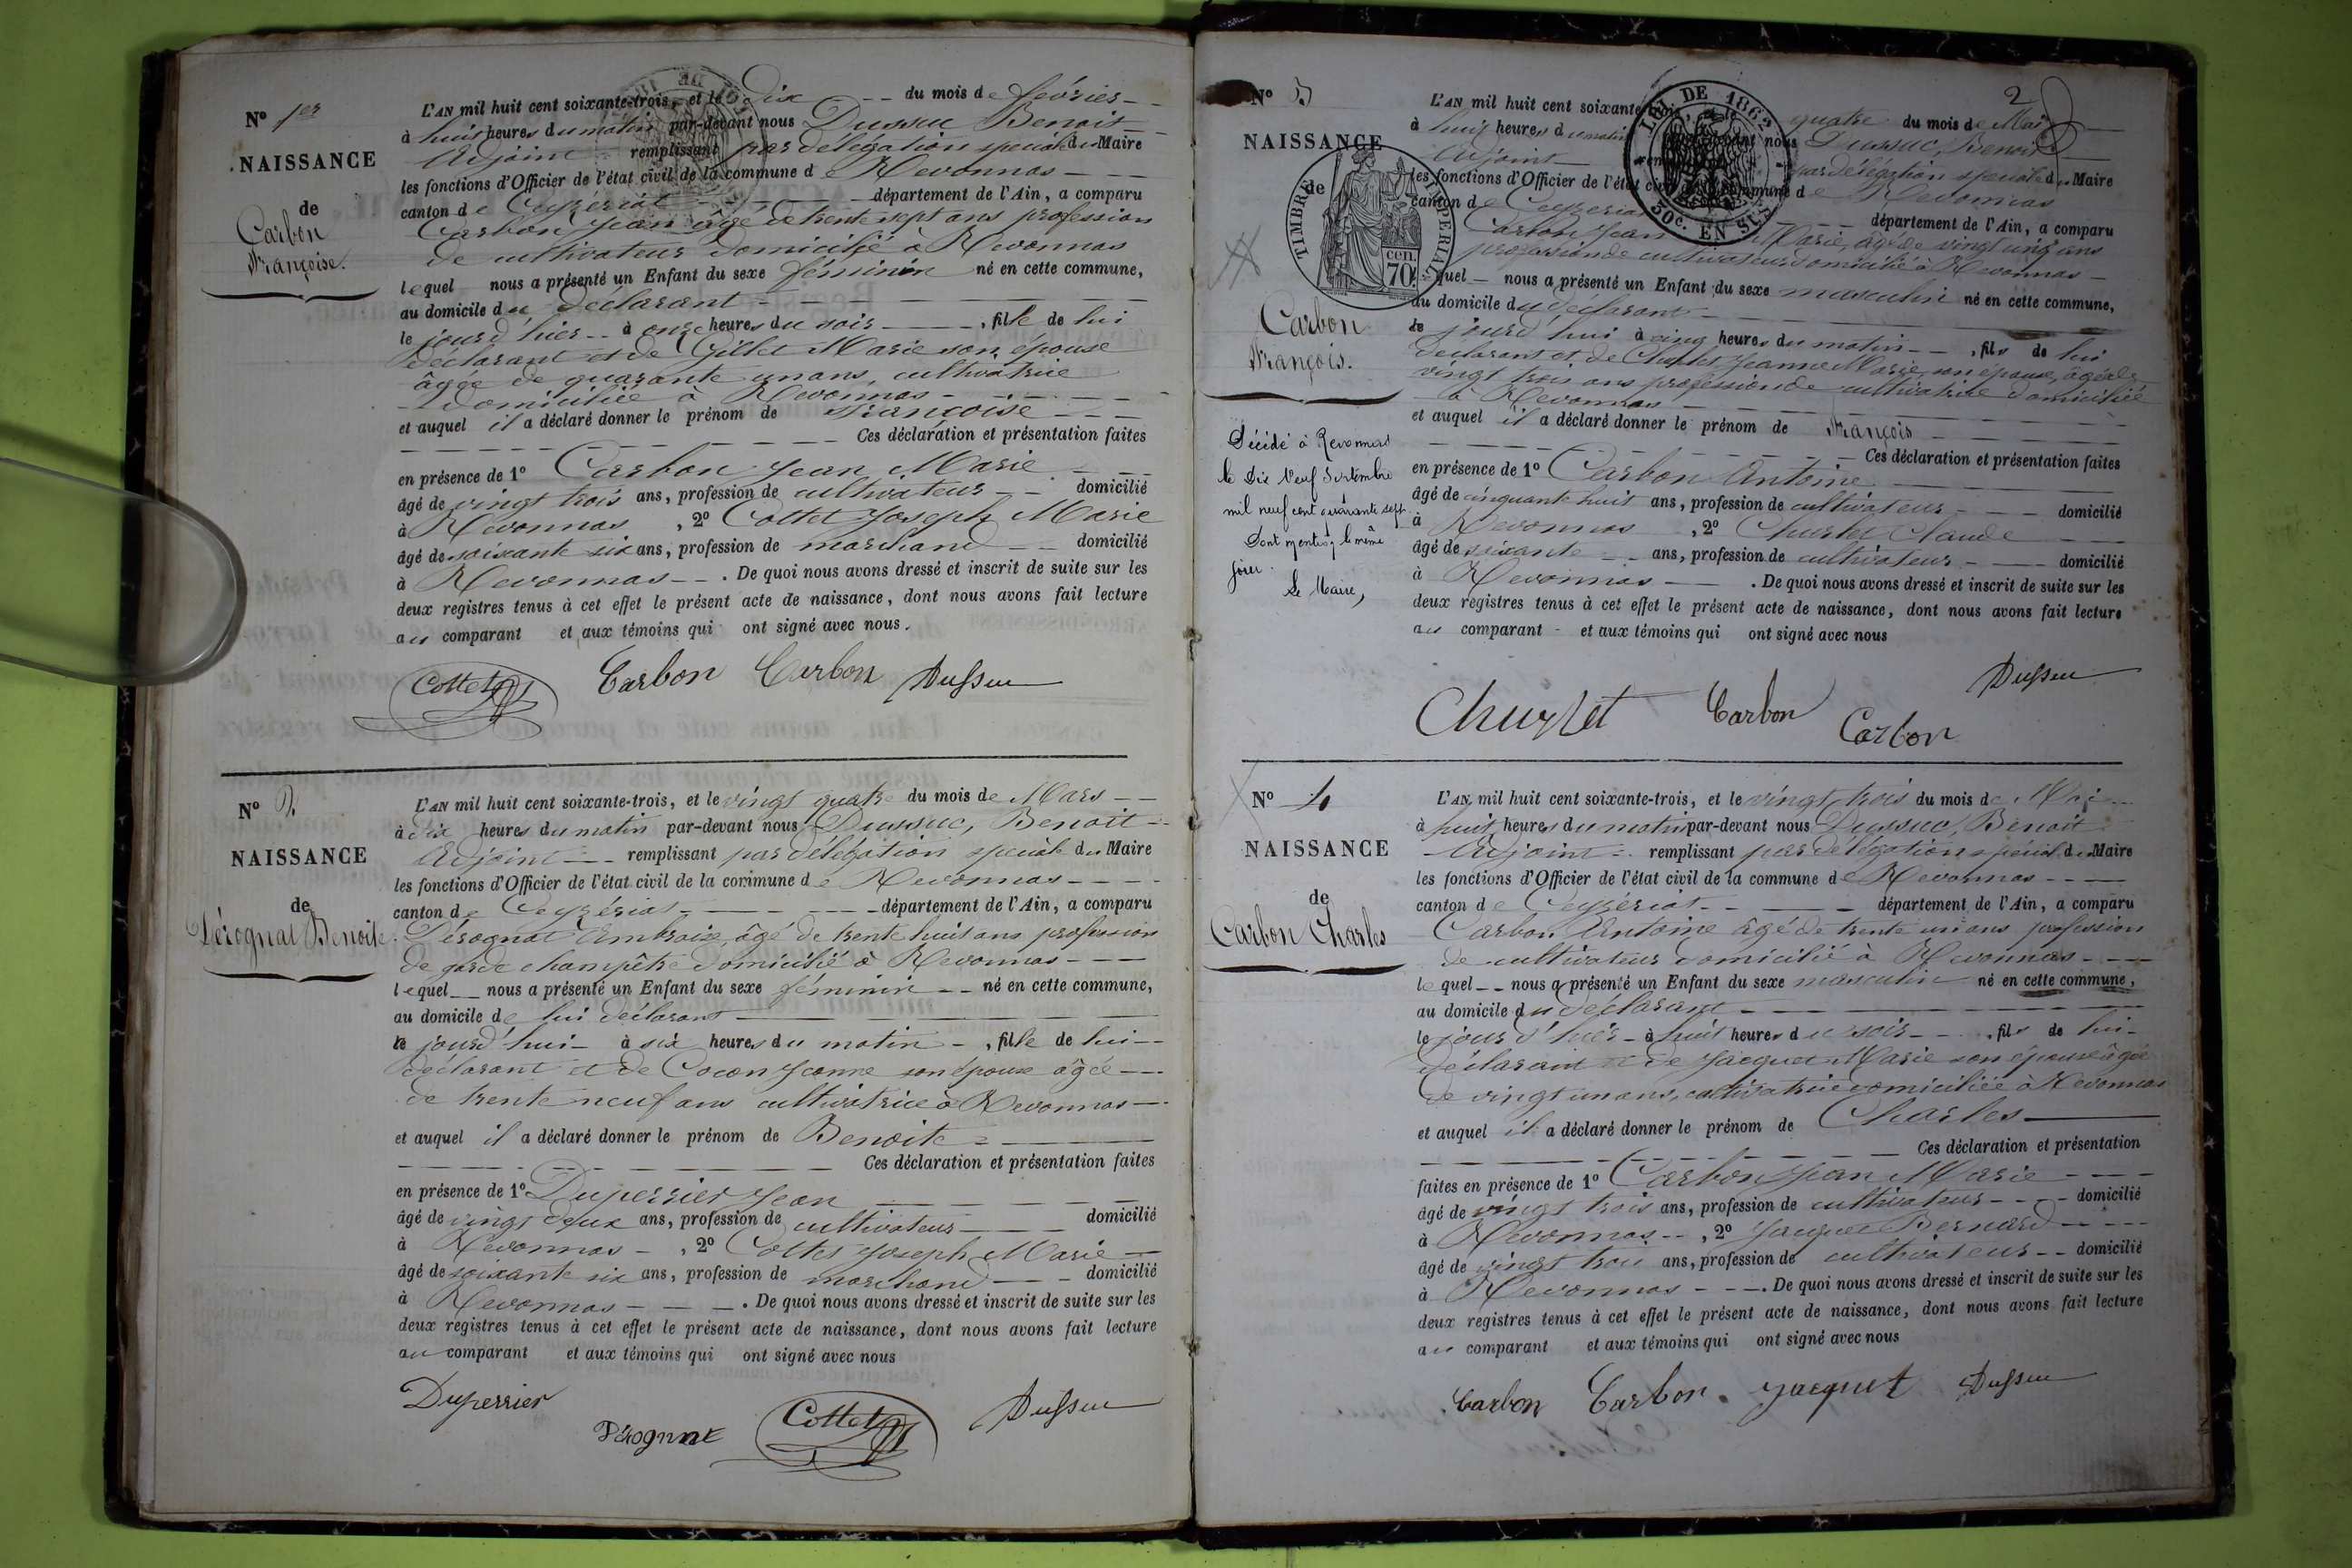 N° 1er
NAISSANCE
de
Carbon
Françoise.
L'AN mil huit cent soixante-trois, et le dix du mois de février
à huit heures du matin par-devant nous Dussuc Benoit
Adjoint remplissant par délégation spéciale du Maire
les fonctions d'Officier de l'état civil de la commune de Revonnas
canton de Ceyzériat département de l'Ain, a comparu
Carbon Jean âgé de trente sept ans profession
de cultivateur domicilié à Revonnas
lequel nous a présenté un Enfant du sexe féminin né en cette commune,
au domicile du déclarant
le jourd'hier à onze heures du soir, fille de lui
déclarant et de Gillet Marie son épouse
âgée de quarante un ans, cultivatrice
domiciliée à Revonnas
et auquel il a déclaré donner le prénom de Françoise
Ces déclaration et présentation faites
en présence de 1° Carbon Jean Marie
âgé de vingt trois ans, profession de cultivateur domicilié
à Revonnas, 2° Cottet Joseph Marie
âgé de soixante six ans, profession de marchand domicilié
à Revonnas. De quoi nous avons dressé et inscrit de suite sur les
deux registres tenus à cet effet le présent acte de naissance, dont nous avons fait lecture
au comparant et aux témoins qui ont signé avec nous.
Cottet Carbon Carbon Dussuc
N° 2
NAISSANCE
de
Dérognat Benoite.
L'AN mil huit cent soixante-trois, et le vingt quatre du mois de Mars
à dix heures du matin par-devant nous Dussuc, Benoit
Adjoint remplissant par délégation spéciale du Maire
les fonctions d'Officier de l'état civil de la commune de Revonnas
canton de Ceyzériat département de l'Ain, a comparu
Dérognat Ambroise, âgé de trente huit ans profession
de garde champêtre domicilié à Revonnas
lequel nous a présenté un Enfant du sexe féminin né en cette commune,
au domicile de lui déclarant
le jourd'hui à six heures du matin, fille de lui
déclarant et de Cocon Jeanne son épouse âgée
de trente neuf ans cultivatrice à Revonnas
et auquel il a déclaré donner le prénom de Benoite
Ces déclaration et présentation faites
en présence de 1° Duperrier Jean
âgé de vingt deux ans, profession de cultivateur domicilié
à Revonnas, 2° Cottet Joseph Marie
âgé de soixante six ans, profession de marchand domicilié
à Revonnas. De quoi nous avons dressé et inscrit de suite sur les
deux registres tenus à cet effet le présent acte de naissance, dont nous avons fait lecture
au comparant et aux témoins qui ont signé avec nous
Duperrier Dérognat Cottet Dussuc
2
N° 3
NAISSANCE
de
TIMBRE IMPERIAL
cen. 70.
Carbon
François.
Décédé à Revonnas
le Dix Neuf Septembre
mil neuf cent quarante sept.
Dont mention le même
jour.
Le Maire,
LOI DE 1862
50c. EN SUS
L'AN mil huit cent soixante quatre du mois de Mai
à huit heures du matin nous Dussuc, Benoit
Adjoint par délégation spéciale du Maire
les fonctions d'Officier de l'état civil commune de Revonnas
canton de Ceyzériat département de l'Ain, a comparu
Carbon Jean Marie, âgé de vingt cinq ans
profession de cultivateur domicilié à Revonnas
quel nous a présenté un Enfant du sexe masculin né en cette commune,
au domicile du déclarant
le jourd'hui à cinq heures du matin, fils de lui
déclarant et de Churlet Jeanne Marie, son épouse, âgée de
vingt trois ans profession de cultivatrice domiciliée
à Revonnas
et auquel il a déclaré donner le prénom de François
Ces déclaration et présentation faites
en présence de 1° Carbon Antoine
âgé de cinquante huit ans, profession de cultivateur domicilié
à Revonnas, 2° Churlet Claude
âgé de soixante ans, profession de cultivateur domicilié
à Revonnas. De quoi nous avons dressé et inscrit de suite sur les
deux registres tenus à cet effet le présent acte de naissance, dont nous avons fait lecture
au comparant et aux témoins qui ont signé avec nous
Churlet Carbon Carbon Dussuc
N° 4
NAISSANCE
de
Carbon Charles
L'AN mil huit cent soixante-trois, et le vingt trois du mois de Mai
à huit heures du matin par-devant nous Dussuc, Benoit
Adjoint remplissant par délégation spéciale du Maire
les fonctions d'Officier de l'état civil de la commune de Revonnas
canton de Ceyzériat département de l'Ain, a comparu
Carbon Antoine âgé de trente un ans profession
de cultivateur domicilié à Revonnas
lequel nous a présenté un Enfant du sexe masculin né en cette commune,
au domicile du déclarant
le jour d'hier à huit heures du soir, fils de lui
déclarant et de Jacquet Marie son épouse âgée
de vingt un ans, cultivatrice domiciliée à Revonnas
et auquel il a déclaré donner le prénom de Charles
Ces déclaration et présentation
faites en présence de 1° Carbon Jean Marie
âgé de vingt trois ans, profession de cultivateur domicilié
à Revonnas, 2° Jacquet Bernard
âgé de vingt trois ans, profession de cultivateur domicilié
à Revonnas. De quoi nous avons dressé et inscrit de suite sur les
deux registres tenus à cet effet le présent acte de naissance, dont nous avons fait lecture
au comparant et aux témoins qui ont signé avec nous
Carbon Carbon. Jacquet Dussuc